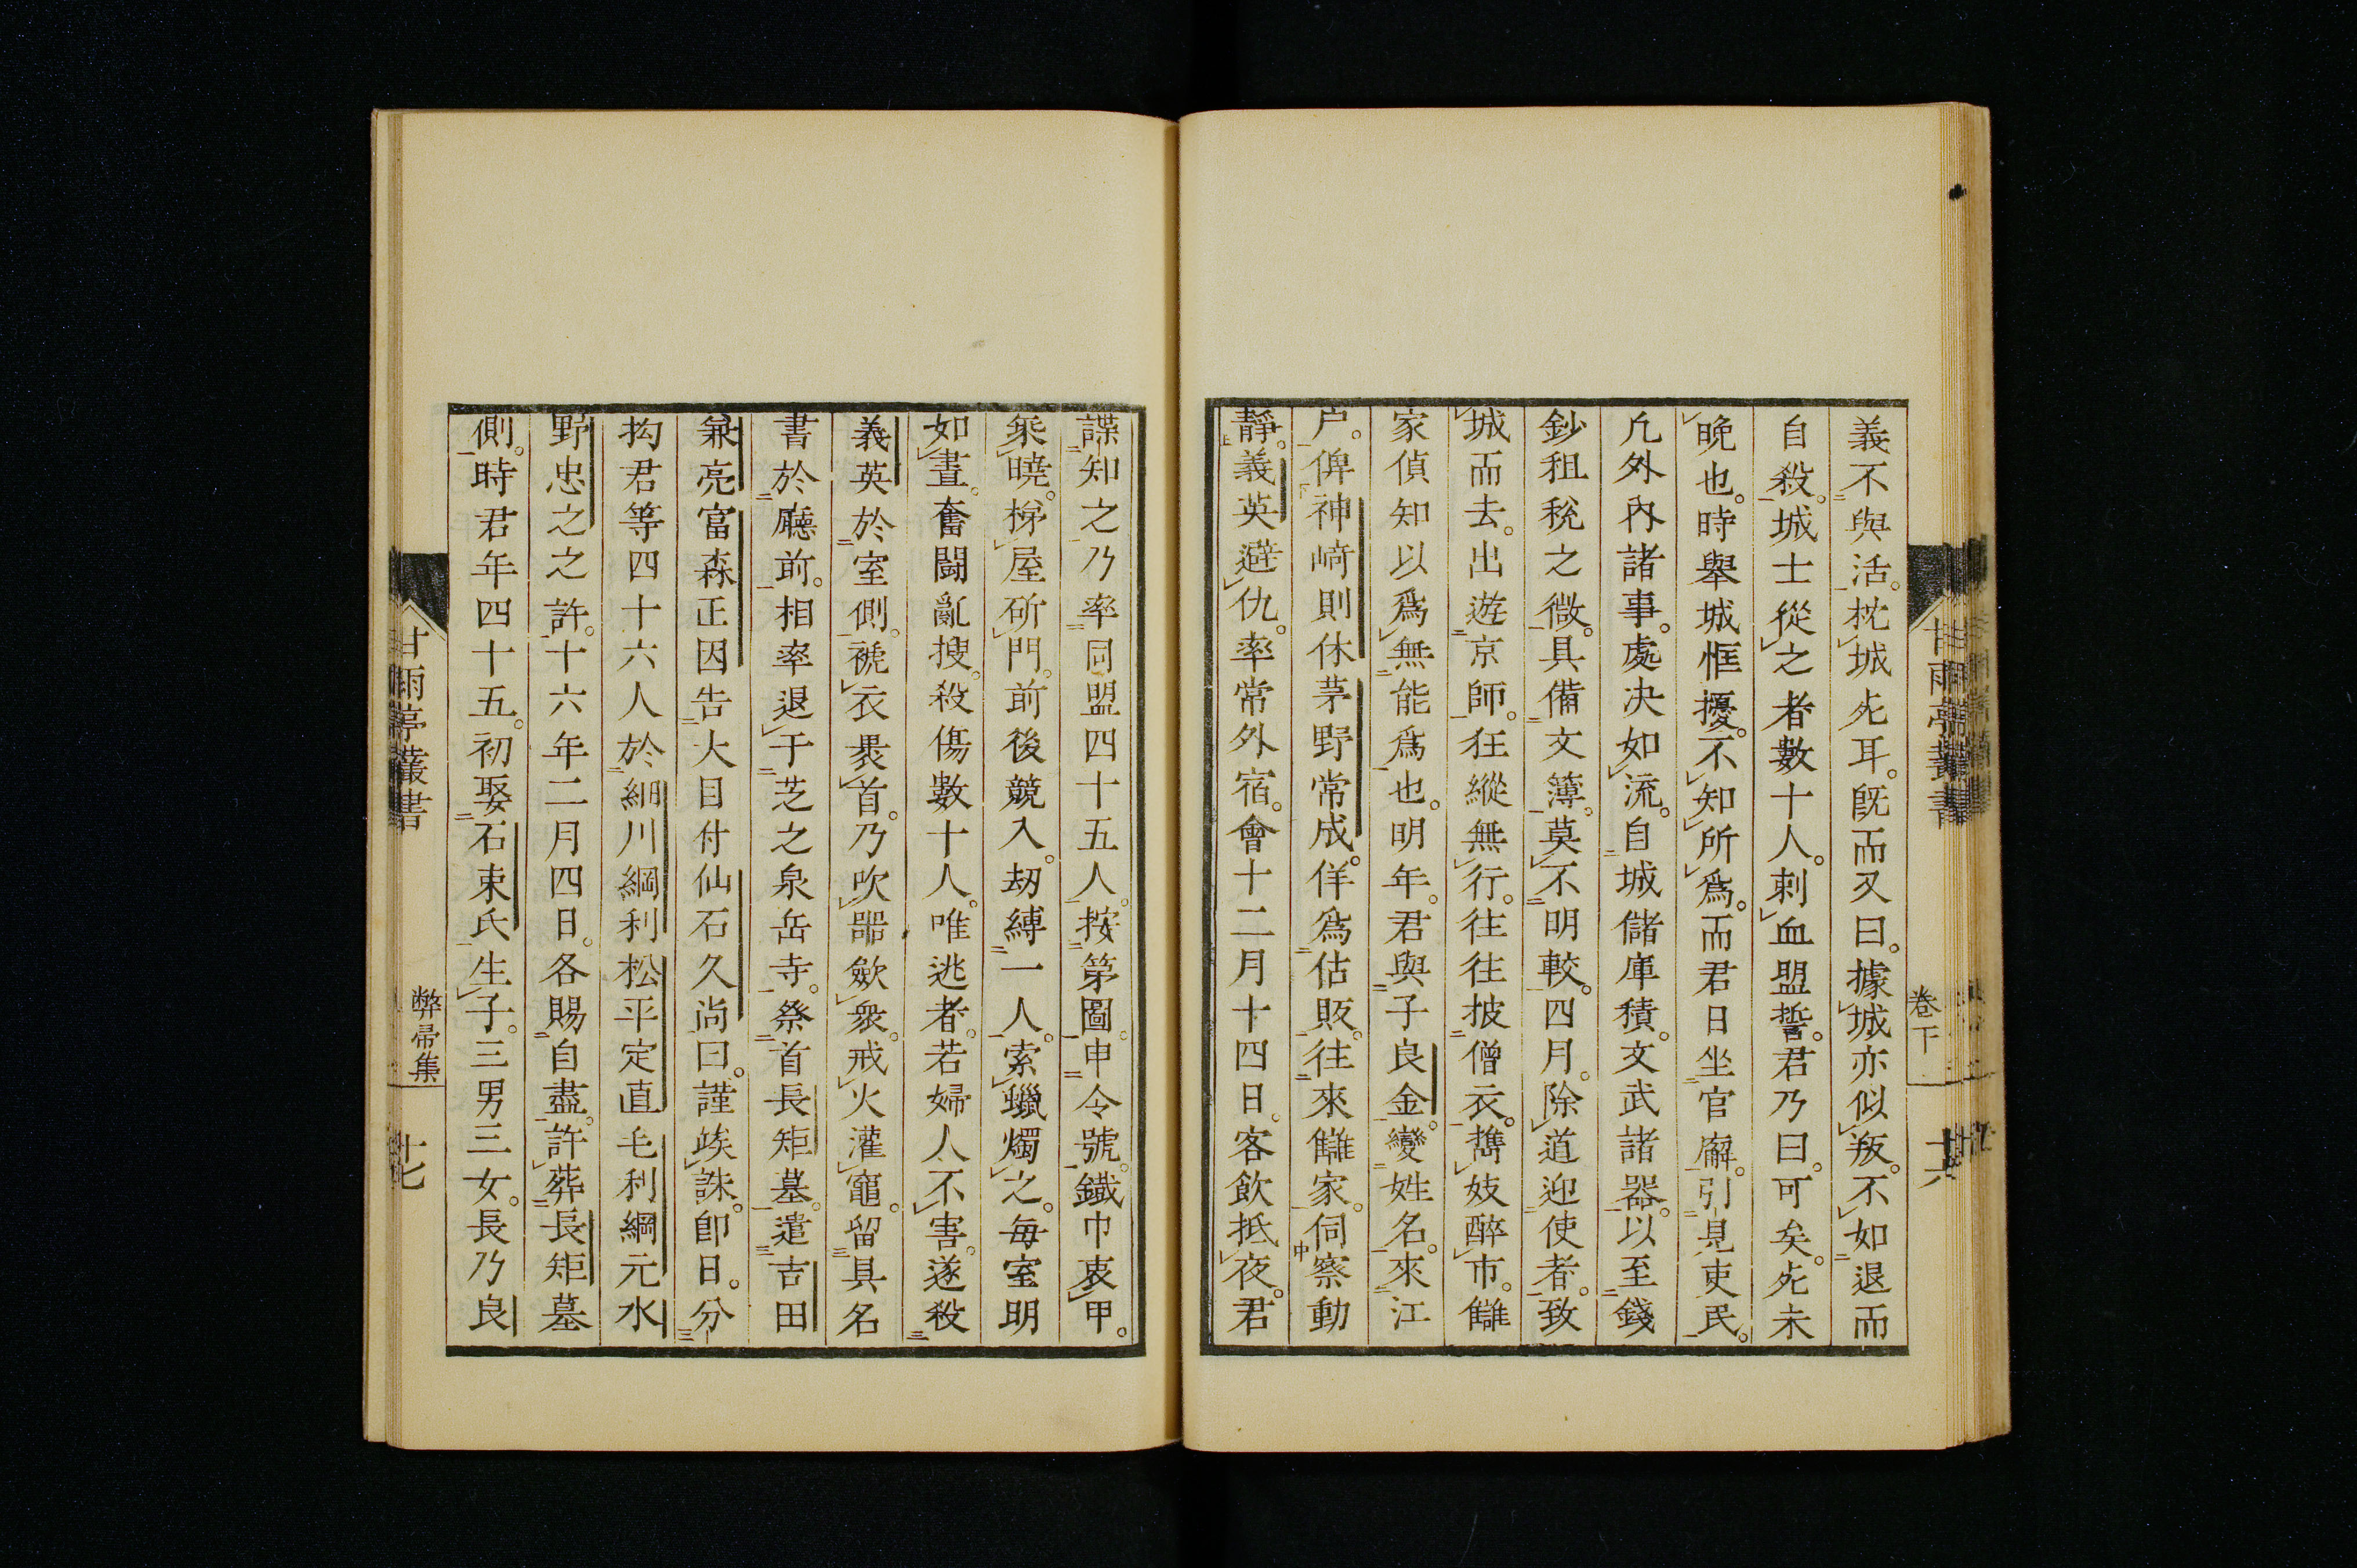 義不與活。枕城死耳。既而又曰。據城亦似叛。不如退而
自殺。城士從之者數十人。刺血盟誓。君乃曰。可矣。死未
晚也。時舉城恇擾。不知所爲。而君日坐官廨。引見吏民。
凢外內諸事。處决如流。自城儲庫積。文武諸器。以至錢
鈔租稅之微。具備文簿。莫不明較。四月。除道迎使者。致
城而去。出遊京師。狂縱無行。往往披僧衣。擕妓醉市。讎
家偵知以爲無能爲也。明年。君與子良金。變姓名。來江
户。俾神崎則休茅野常成。佯爲估販。往來讎家。伺察動
靜。義英避仇。率常外宿。會十二月十四日。客飲抵夜。君
諜知之乃率同盟四十五人。按第圖。申令號。鐵巾衷甲。
乘曉。梯屋斫門。前後競入。刼縛一人。索蠟燭之。每室明
如晝。奮鬪亂搜。殺傷數十人。唯逃者。若婦人不害。遂殺
義英於室側。褫衣褁首。乃吹噐歛衆。戒火灌竈。留具名
書於廳前。相率退于芝之泉岳寺。祭首長矩墓。遣吉田
兼亮富森正因告大目付仙石久尚曰。謹竢誅。卽日。分
拘君等四十六人於細川綱利松平定直毛利綱元水
野忠之之許。十六年二月四日。各賜自盡。許葬長矩墓
側。時君年四十五。初娶石束氏。生子。三男三女。長乃良
甘雨亭叢書
卷下
十六
甘雨亭叢書
弊帚集
十七